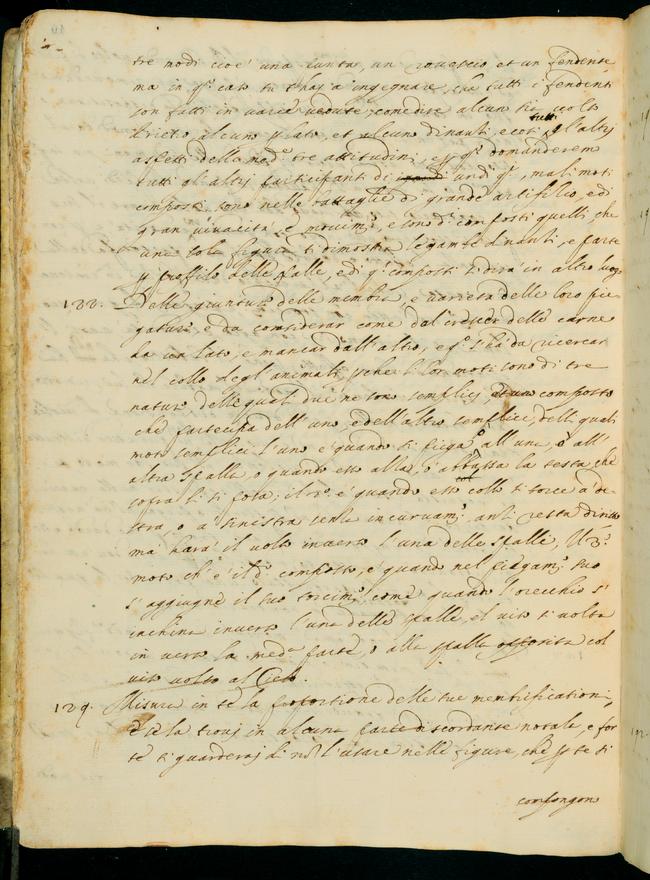 tre modi cioè una punta, un rovescio et un fendente
ma in q.o caso tu t'haj a ingegnare, che tutti i fendenti
son fatti in varie vedute, come dire alcun sia volto
drieto, alcuno p lato, et alcuno dinanti, e così tutti gl'altrj
aspetti della med.a tre attitudini, e p q.o domanderemo
tutti gl'altrj participanti di un di q.i, ma li moti
composti, sono nelle battaglie di grande artifitio, e di
gran vivacità, e movim.o, e sono d.i composti quelli che
una sola figura ti dimostra le gambe dinanti, e parte
p proffilo delle spalle, e di q.i composti si dirà in altro luogo
122. Delle giunture delle membra, e varietà delle loro pie
gature, è da considerar come dal crescer della carne
da un lato, e mancar dall'altro, e q.o s'hà da ricercar
nel collo degl'animali, perche li lor moti sono di tre
nature delle quali due ne sono semplici, et uno composto
che participa dell'uno, e dell'altro semplice, delli quali
moti semplici l'uno è quando si piega all'una, ò all'
altra spalla, o quando esso alza, o abbassa la testa che
sopra li si posa; il 2.o è quando esso collo si torce a de
stra, o a sinistra senza incurvam.o, anzi resta diritto
ma harà il volto inverso l'una delle spalle, il 3.o
moto ch'è il d.o composto, e quando nel piegam.o suo
s'aggiugne il suo torcim.o come quando l'orecchio s'
inchina inverso l'una delle spalle, el viso si volta
in verso la med.a parte, o alla spalla opposita col
viso volto al Cielo.
129. Misura in te la proportione delle tue membrificationi,
e se la trovi in alcuna parte discordante notale, e for
te ti guarderaj di nõ l'usare nelle figure, che p te si
compongono